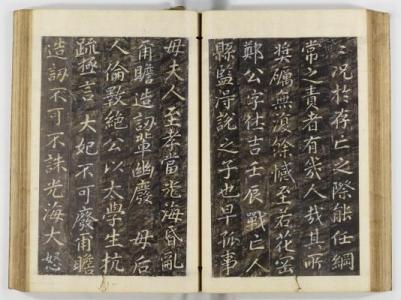 況於存亡之際能任綱
常之責者有幾人哉其所
獎礪無復餘憾至若花
鄭公字仕吉壬辰戰亡人
縣監得說之子也早孤事
母夫人至孝當光海昏亂
爾瞻造訒輩幽廢 母后
人倫斁絶公以太學生抗
疏極言 大妃不可廢爾瞻
造訒不可不誅光海大怒